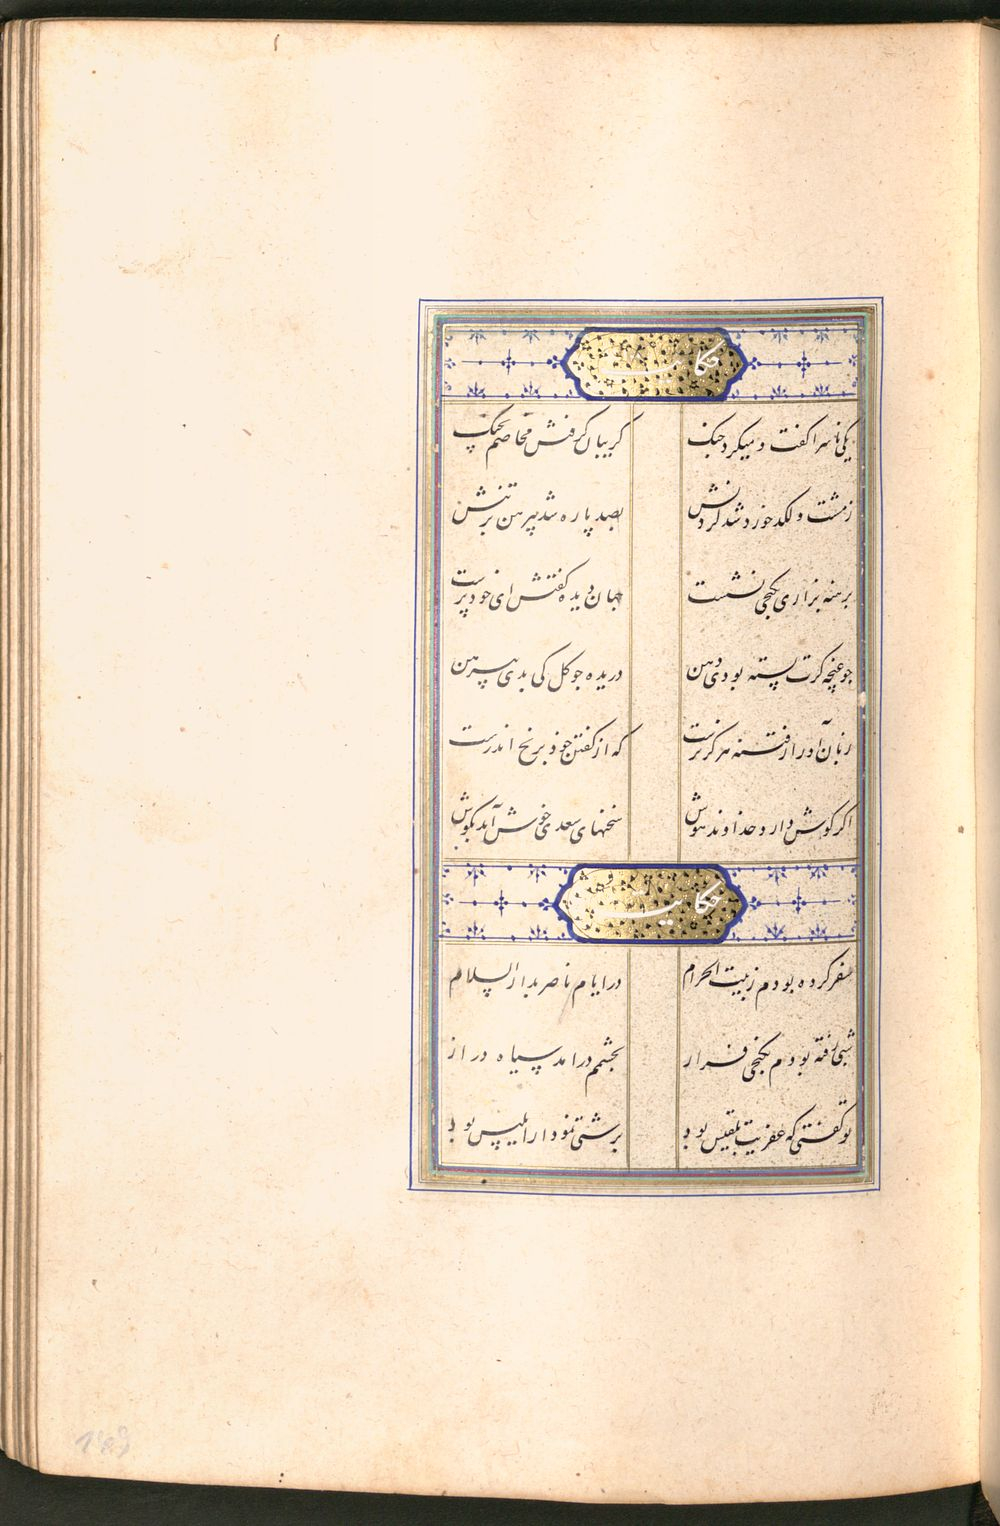 حکایت
یکی ناسزا گفت و میکرد جنک گریبان گرفتش مخاصم بچنک
ز مشت و لکد خورد شد گردنش بصد پاره شد پیرهن بر تنش
برهنه بزاری بکنجی نشست جهان دیده کفتش ای خود پرست
جو غنچه گرت بسته بودی دهن دریده جو کل کی بدی پیرهن
که از گفتن خود برنج اندرست
اکر کوش دارد خداوند هوش سخنهای سعدی خوش آید بکوش
حکایت
سفر کرده بودم ز بیت الحرام در ایام ناصر بدار السلام
شبی رفته بودم بکنجی فراز بچشم درامد سیاه دراز
تو کفتی که عفریت بلقیس بود بزشتی نمودار ابلیس بود